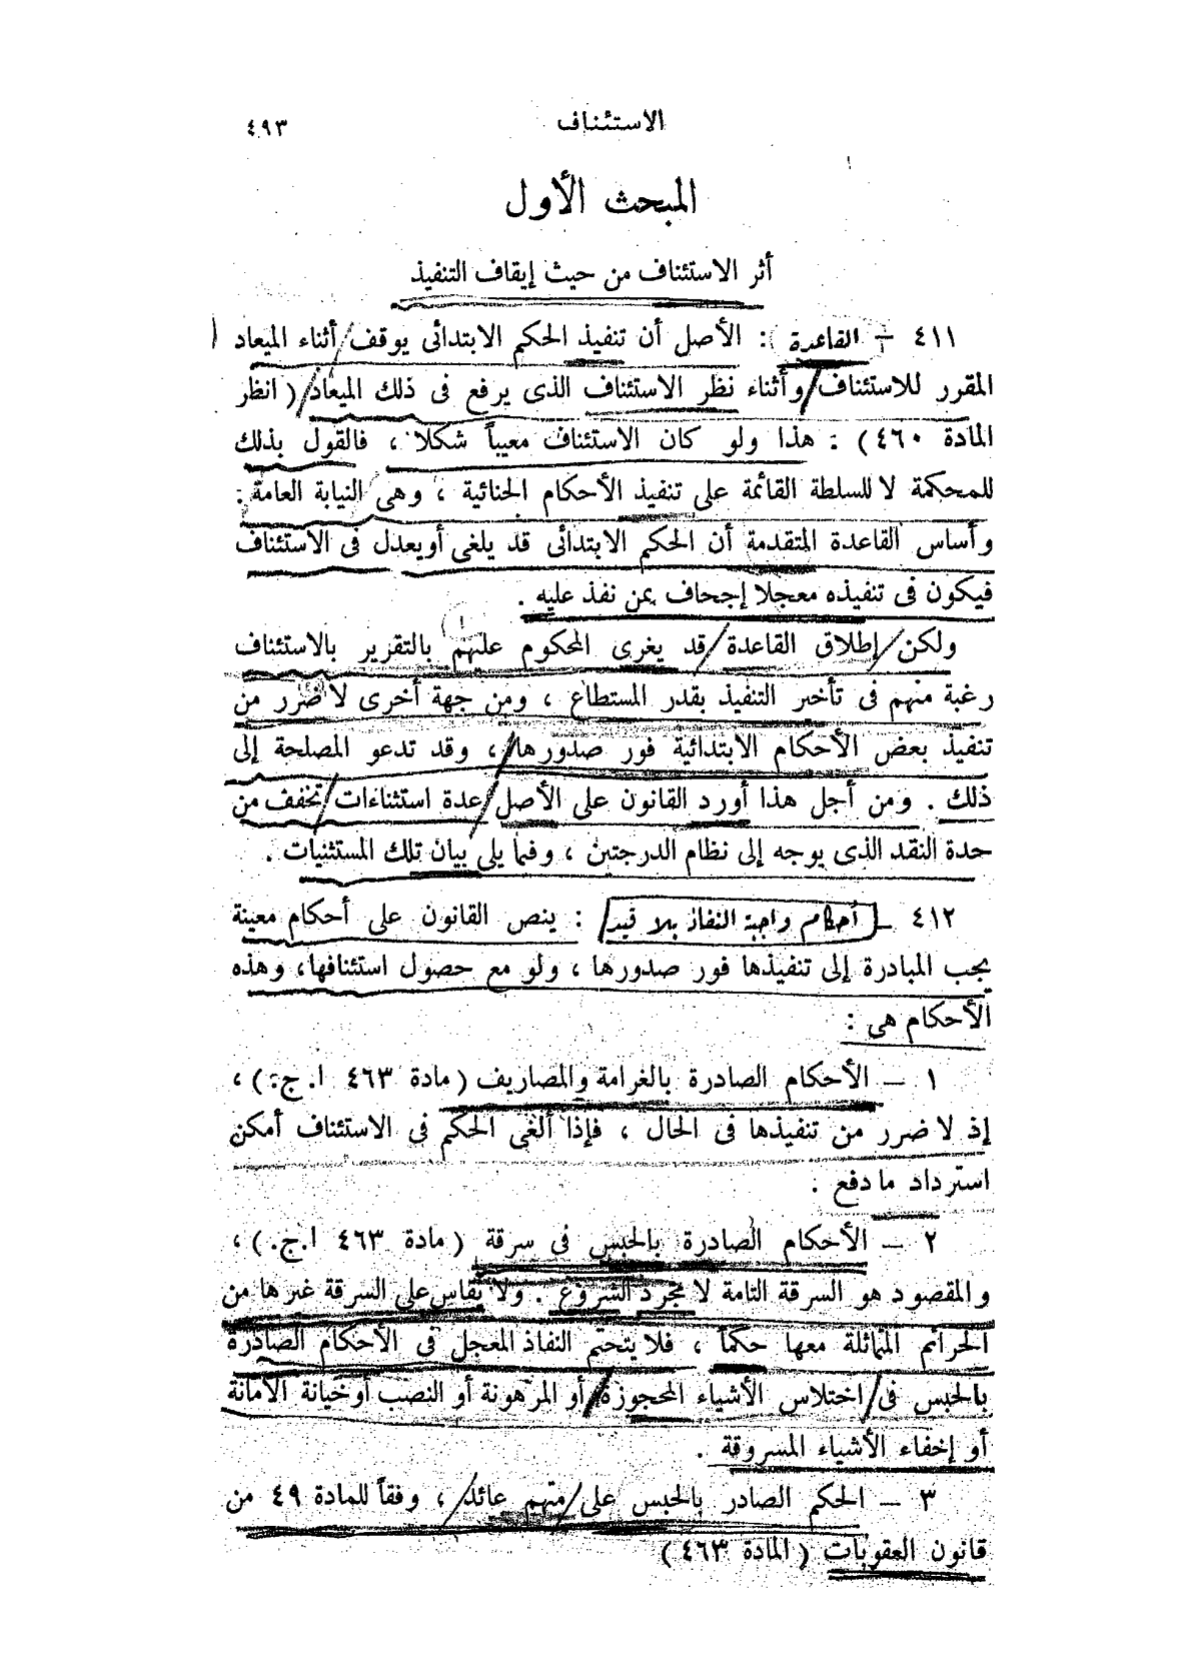 الاستئناف ٤٩٣
المبحث الأول
أثر الاستئناف من حيث إيقاف التنفيذ
٤١١ – القاعدة : الأصل أن تنفيذ الحكم الابتدائى يوقف أثناء الميعاد
المقرر للاستئناف وأثناء نظر الاستئناف الذى يرفع فى ذلك الميعاد ( انظر
المادة ٤٦٠ ) . هذا ولو كان الاستئناف معيباً شكلا ، فالقول بذلك
للمحكمة لا للسلطة القائمة على تنفيذ الأحكام الجنائية ، وهى النيابة العامة .
وأساس القاعدة المتقدمة أن الحكم الابتدائى قد يلغى أو يعدل فى الاستئناف
فيكون فى تنفيذه معجلا إجحاف بمن نفذ عليه .
ولكن إطلاق القاعدة قد يغرى المحكوم عليهم بالتقرير بالاستئناف
رغبة منهم فى تأخير التنفيذ بقدر المستطاع ، ومن جهة أخرى لا ضرر من
تنفيذ بعض الأحكام الابتدائية فور صدورها ، وقد تدعو المصلحة إلى
ذلك . ومن أجل هذا أورد القانون على الأصل عدة استثناءات تخفف من
حدة النقد الذى يوجه إلى نظام الدرجتين ، وفيما يلى بيان تلك المستثنيات .
٤١٢ – أحكام واجبة النفاذ بلا قيد : ينص القانون على أحكام معينة
يجب المبادرة إلى تنفيذها فور صدورها ، ولو مع حصول استئنافها ، وهذه
الأحكام هى :
١ – الأحكام الصادرة بالغرامة والمصاريف ( مادة ٤٦٣ ا . ج . ) ،
إذ لا ضرر من تنفيذها فى الحال ، فإذا ألغى الحكم فى الاستئناف أمكن
استرداد ما دفع .
٢ – الأحكام الصادرة بالحبس فى سرقة ( مادة ٤٦٣ ا . ج . ) ،
والمقصود هو السرقة التامة لا مجرد الشروع . ولا يقاس على السرقة غيرها من
الجرائم المماثلة معها حكماً ، فلا يتحتم النفاذ المعجل فى الأحكام الصادرة
بالحبس فى اختلاس الأشياء المحجوزة أو المرهونة أو النصب أو خيانة الأمانة
أو إخفاء الأشياء المسروقة .
٣ – الحكم الصادر بالحبس على متهم عائد ، وفقاً للمادة ٤٩ من
قانون العقوبات ( المادة ٤٦٣ )